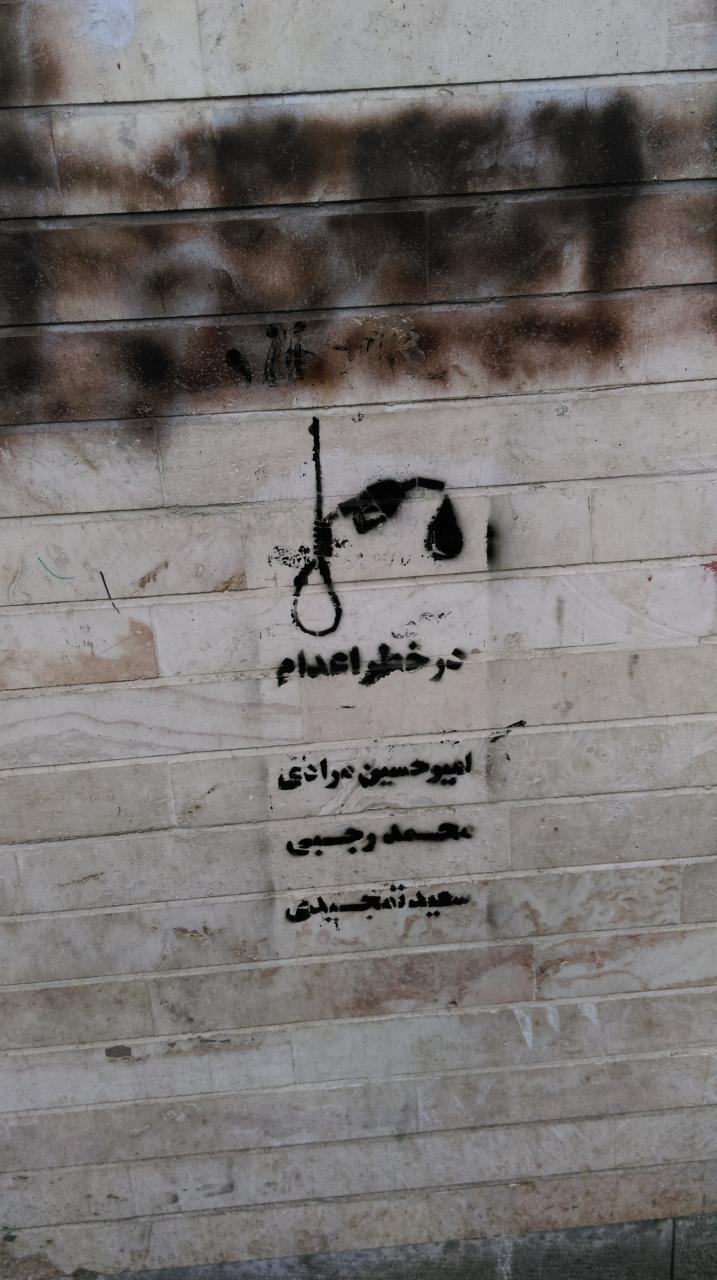 در خطر اعدام
امیرحسین مرادی
محمد رجبی
سعید تمجیدی